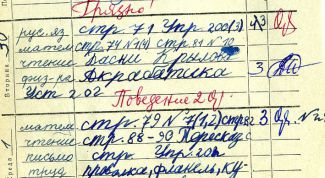 Грязно!
30
Вторник
рус.яз. стр. 71 Упр. 200(3) 3
матем стр. 74 N 1(4) стр 81 N 10
чтение Басни Крылова
физ-ра Акрабатика 3
Уст 202
Поведение 2
1
Среда
матем. стр. 79 N 7(1,2) 3
чтение стр. 88-90 Пересказ
письмо стр. Упр. 201
труд проволка, фланель, ку-